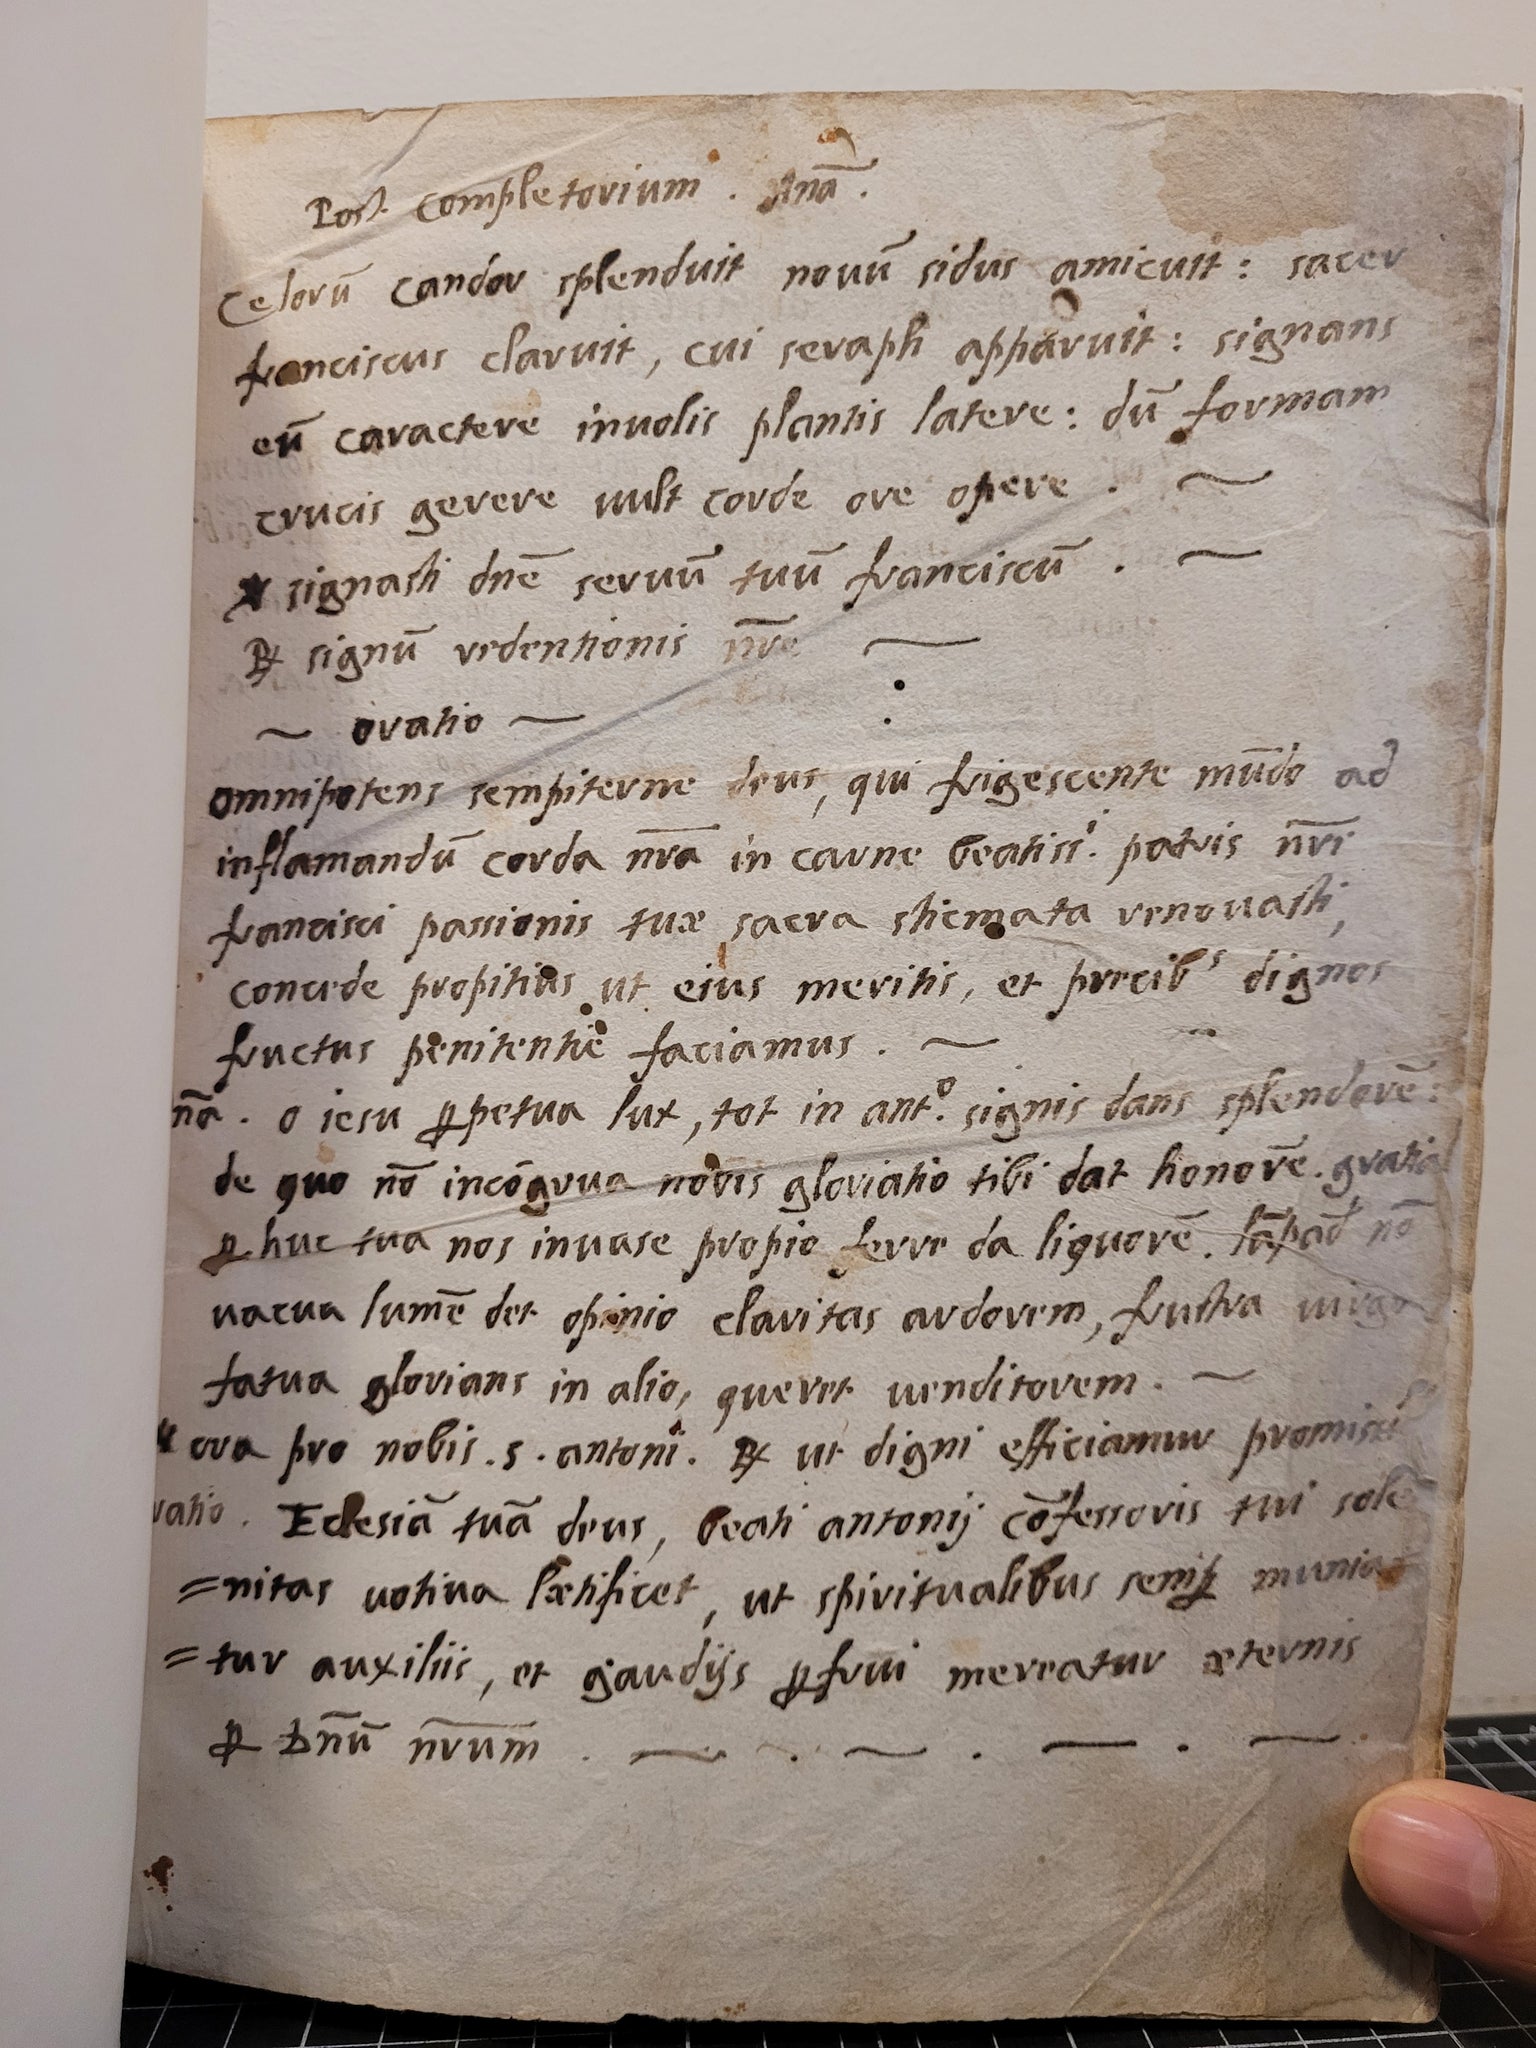 Post completorium . Anā .
Celorū candor splenduit nouū sidus amicuit : sacer
franciscus claruit , cui seraph apparuit : signans
eū caractere inuolis plantis latere : dū formam
crucis gerere uult corde ore opere . ~
℣ signasti dnē seruū tuū franciscū . ~
℟ signū redentionis nr̄e ~
~ oratio ~
omnipotens sempiterne deus, qui frigescente mūdo ad
inflamandū corda nr̄a in carne beatissi. patris nr̄i
francisci passionis tuæ sacra sticmata renouasti,
concede propitius ut eius meritis, et precibˢ dignos
fructus penitentie faciamus . ~
nā . o iesu ꝑpetua lux , tot in antº. signis dans splendorē :
de quo nō incōgrua nobis gloriatio tibi dat honorē . gratia
ꝑ huc tua nos inuase propio ferre da liquorē . lāpad nō
uacua lumē det opinio claritas ardorem, frustra uirgo
fatua glorians in alio, queret uenditorem . ~
℣ ora pro nobis . s . antoni . ℟ ut digni efficiamur promissi
ratio . Eclesiā tuā deus, beati antonij cōfessoris tui solē
=nitas uotiua lætificet , ut spiritualibus semꝑ munia
=tur auxiliis , et gaudijs ꝑfrui mereatur æternis
ꝑ dn̄ū nr̄um . ~ . ~ . — . ~ .